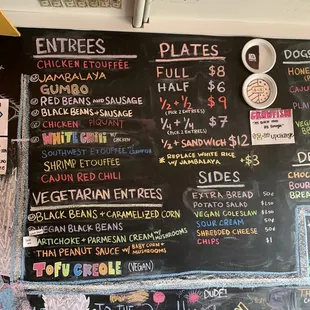 ENTREES
CHICKEN ETOUFFÉE
JAMBALAYA
GUMBO
RED BEANS AND SAUSAGE
BLACK BEANS + SAUSAGE
CHICKEN PIQUANT
WHITE CHILI W/ CHICKEN
SOUTHWEST ETOUFFÉE
SHRIMP ETOUFFÉE
CAJUN RED CHILI
VEGETARIAN ENTREES
BLACK BEANS + CARAMELIZED CORN
VEGAN BLACK BEANS
ARTICHOKE + PARMESAN CREAM W/ MUSHROOMS
THAI PEANUT SAUCE W/ BABY CORN + MUSHROOMS
TOFU CREOLE (VEGAN)
PLATES
FULL $8
HALF $6
1/2 + 1/2 $9
(PICK 2 ENTREES)
1/4 + 1/4 $7
(PICK 2 ENTREES)
1/2 + SANDWICH $12
* REPLACE WHITE RICE W/ JAMBALAYA +$3
SIDES
EXTRA BREAD 50¢
POTATO SALAD
VEGAN COLESLAW
SOUR CREAM
SHREDDED CHEESE
CHIPS $1
CRAWFISH
DOGS
DUDE!
TO THE